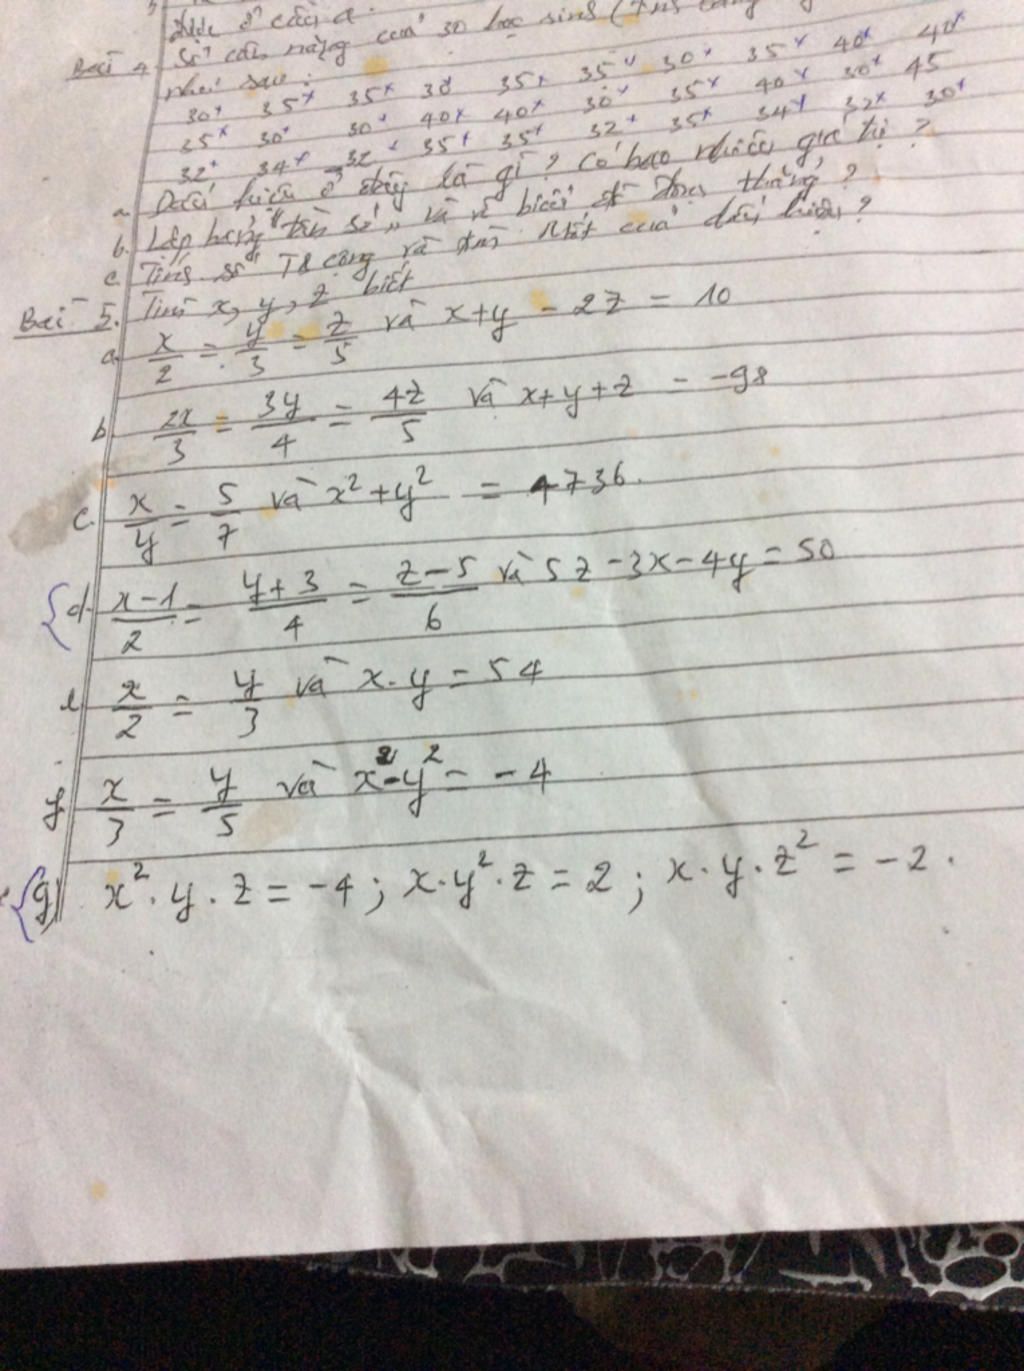 được ở câu a.
Bài 4 Số cân nặng của 30 học sinh (
như sau:
30 35 35 30 35 35 30 35 40 40
35 30 30 40 40 30 35 40 30 45
32 34 32 35 35 32 35 34 32 30
a. Dấu hiệu ở đây là gì? Có bao nhiêu giá trị?
b. Lập bảng "tần số" và vẽ biểu đồ đoạn thẳng?
c. Tính số TB cộng và tìm Mốt của dấu hiệu?
Bài 5. Tìm x, y, z biết
a. x/2 = y/3 = z/5 và x+y - 2z = 10
b 2x/3 = 3y/4 = 4z/5 và x+y+z = -98
c. x/y = 5/7 và x²+y² = 4736.
d. x-1/2 = y+3/4 = z-5/6 và 5z-3x-4y=50
e x/2 = y/3 và x.y = 54
f x/3 = y/5 và x²-y² = -4
g) x².y.z = -4; x.y².z = 2; x.y.z² = -2.